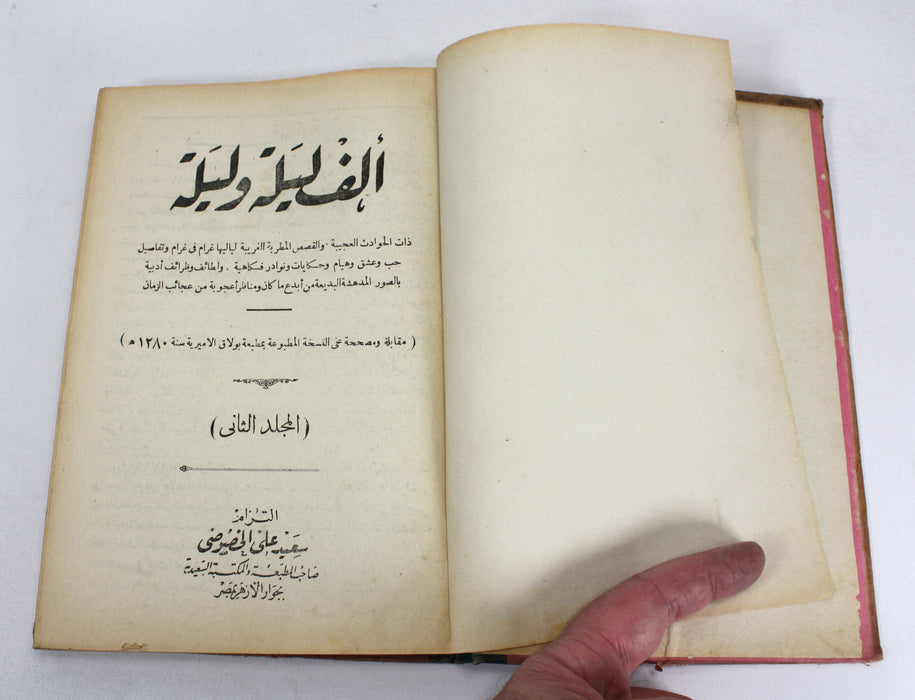 ألف ليلة وليلة
ذات الحوادث العجيبة . والقصص المطربة الغريبة لياليها غرام فى غرام وتفاصيل
حب وعشق وهيام وحكايات ونوادر فكاهية . ولطائف وظرائف أدبية
بالصور المدهشة البديعة من أبدع ما كان ومناظر أعجوبة من عجائب الزمان
( مقابلة ومصححة على النسخة المطبوعة بمطبعة بولاق الاميرية سنة ١٢٨٠ ه )
( المجلد الثانى )
التزام
سعيد على الخصوصى
صاحب المطبعة والمكتبة السعيدية
بجوار الازهر بمصر